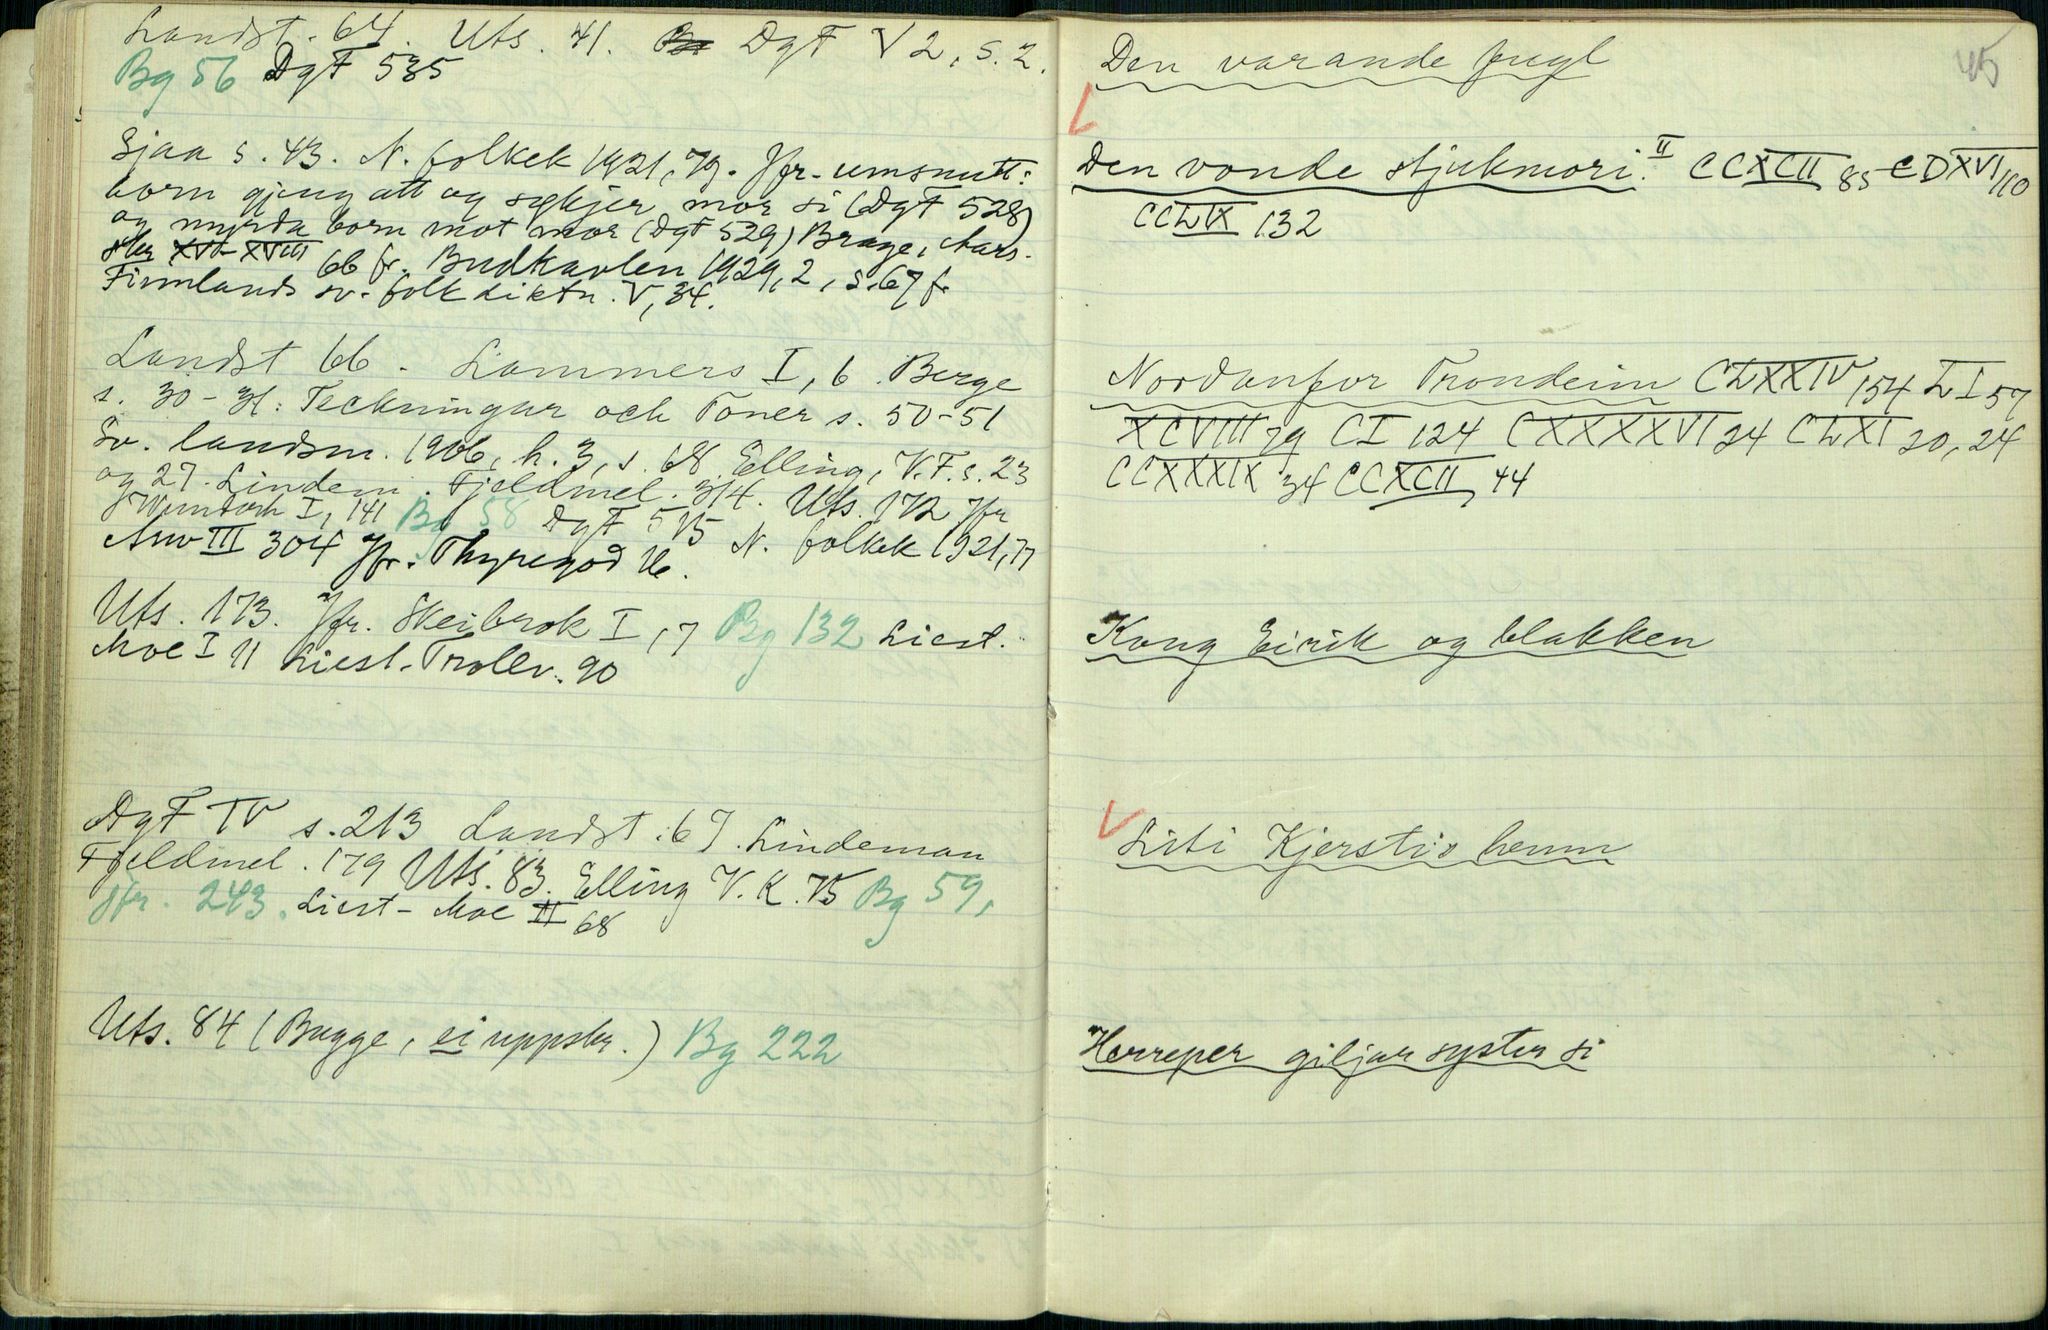 Landst. 64. Uts. 41. DgF V 2, s. 2.
Bg 56 DgF 535
Sjaa s. 43. N. folkek 1921, 79. Jfr. umsnutt:
born gjeng att og sykjer mor si (DgF 528)
og myrda born mot mor (DgF 529) Brage, Aars-
skr XVI-XVIII 66 fr. Budkavlen 1929, 2, s. 67 f.
Finnlands sv. folkdiktn. V, 34.
Landst 66. Lammers I, 6. Berge
s. 30-31: Teckningar och Toner s. 50-51
Sv. landsm. 1906, h. 3, s. 68 Elling, V.F. s. 23
og 27. Lindem. Fjeldmel. 314. Uts. 172 Jfr
I, 141 Bg 58 DgF 515 N. folkek 1921, 77
III 304 Jfr. Thyregod
Uts. 173. Jfr. Skeibrok I, 7 Bg 132 Liest.
Moe I 11 Liest. Trollv. 90
DgF IV s. 213 Landst. 67. Lindeman
Fjeldmel. 179 Uts. 83. Elling V. K. 75 Bg 59,
jfr. 243. Liest-Moe II 68
Uts. 84 (Bugge, ei uppskr.) Bg 222
45
Den varande fugl
Den vonde stjukmori. II CCXCII 85 CDXVI 110
CCLIX 132
Nordanfor Trondeim CLXXIV 154 LI 57
XCVIII 79 CI 124 CXXXXVI 24 CLXI 20, 24
CCXXXIX 34 CCXCII 44
Kong Eirik og blakken
Liti Kjerstis hemn
Herreper giljar syster si